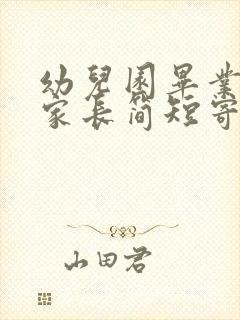 幼兒園畢業
家長简短寄
山田君